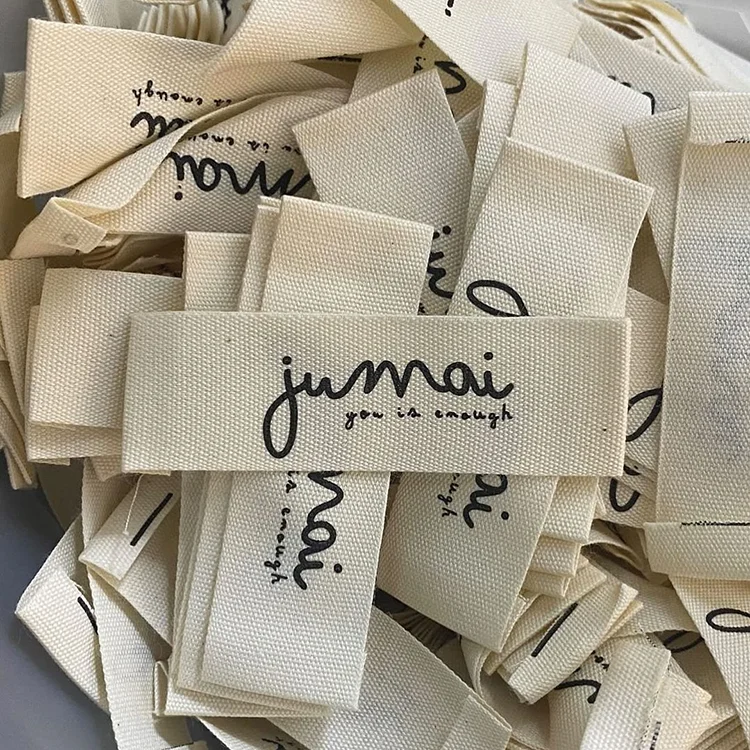 jumai
you is enough